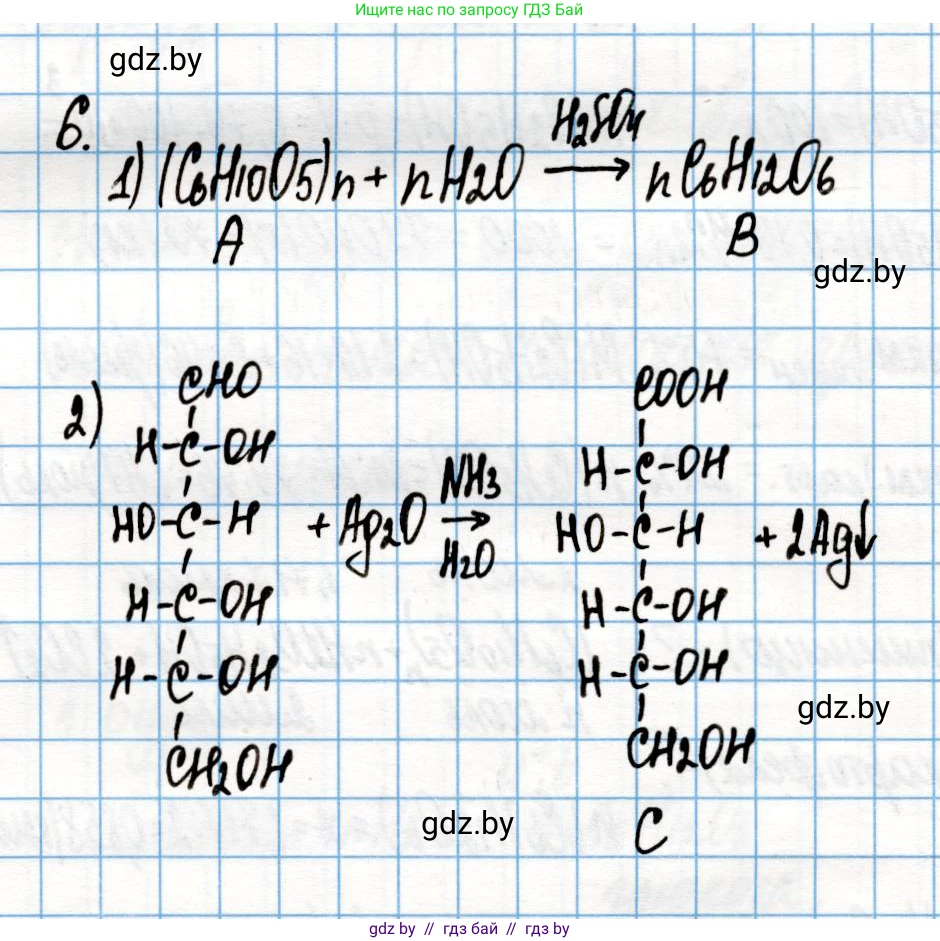 Ищите нас по запросу ГДЗ Бай
gdz.by
6.
1) (C6H10O5)n + nH2O ⟶ nC6H12O6
H2SO4
A
B
gdz.by
2)
CHO
H-C-OH
HO-C-H
H-C-OH
H-C-OH
CH2OH
+ Ag2O ⟶
NH3
H2O
COOH
H-C-OH
HO-C-H
H-C-OH
H-C-OH
CH2OH
+ 2Ag↓
gdz.by
gdz.by
C
gdz by // гдз бай // gdz by